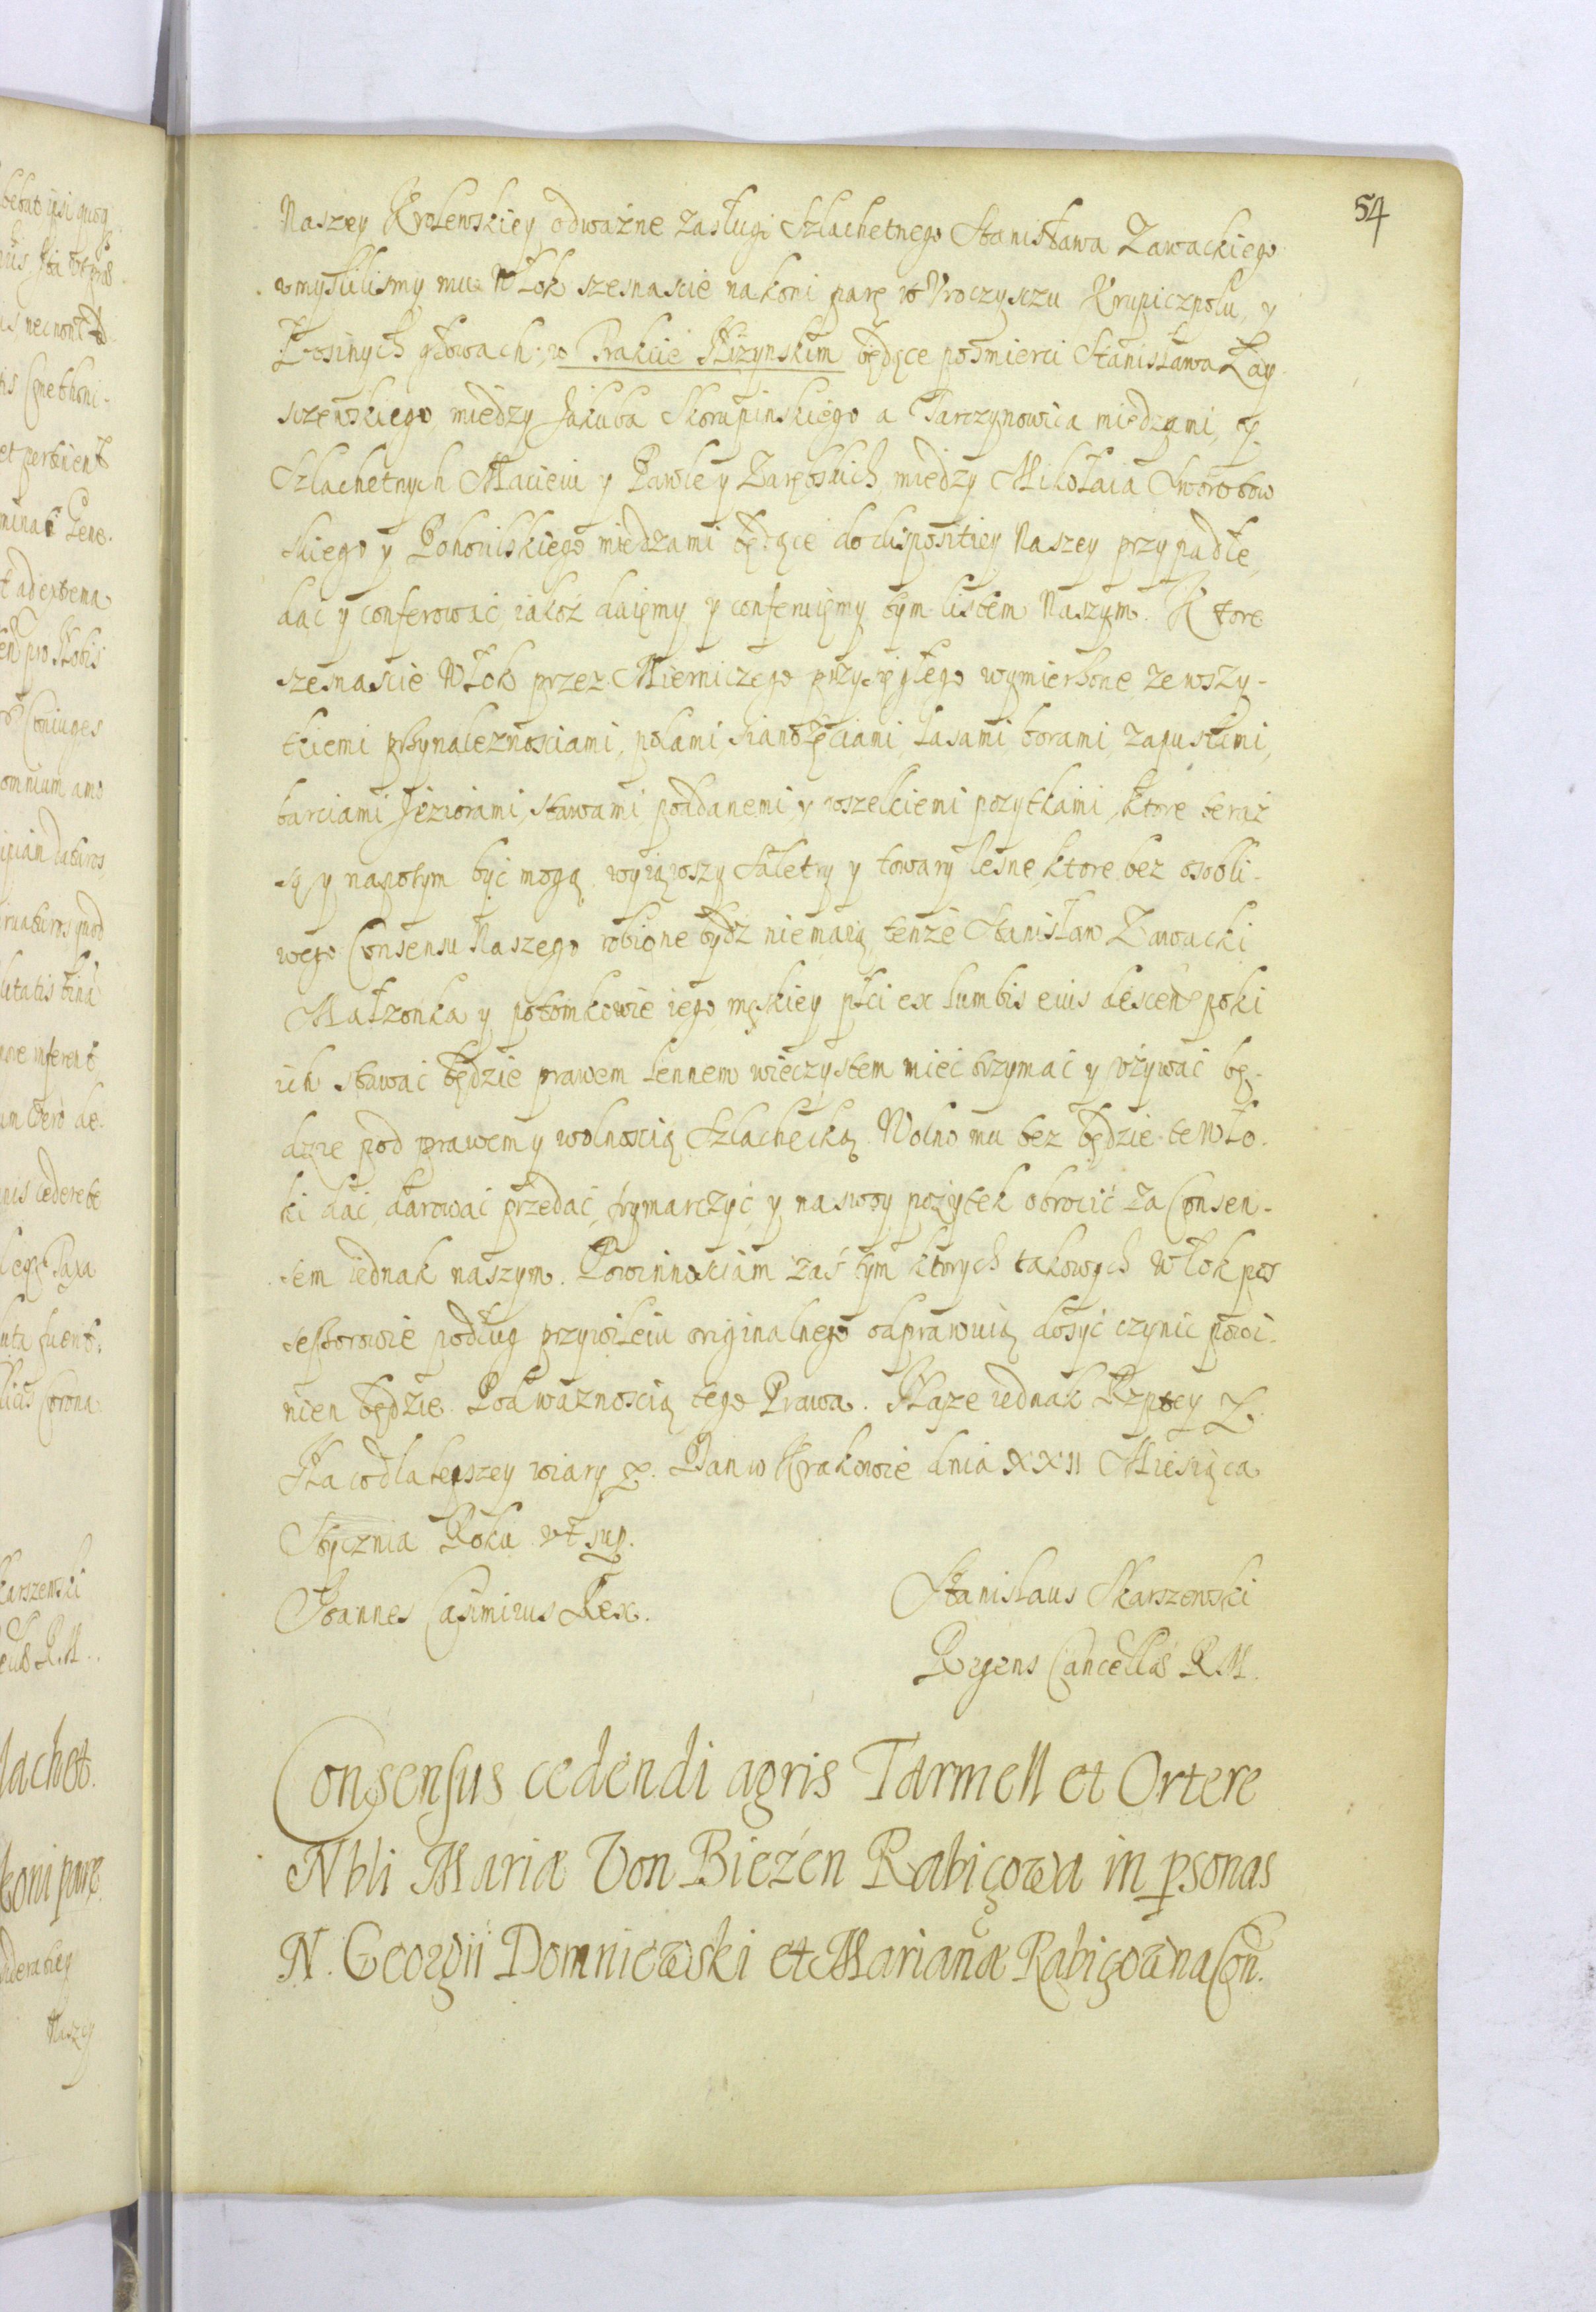 54
Naszey Krolewskiey odważne zasługi Szlachetnego Stanisława Zawackiego
vmyslilismy mu Włok szesnascie na koni parę w Vroczysczu Krupiczpolu, y
Łosinych głowach w Trakcie Niżynskim będące po smierci Stanisława Zay
sczewskiego, miedzy Jakuba Skorupinskiego a Tarczynowica miedzami, y
Szlachetnych Macieiu y Pawle y Zaręoskich miedzy Mikołaia Sworobow
skiego y Pohoriłskiego miedzami będące do dispositiey Naszey przypadłe,
dać y conferować iakoż daięmy y conferuięmy tym listem Naszym. Ktore
szesnascie Włok przez Mierniczego przysięgłego wymierzone ze wszy-
tkiemi przynaleznosciami, polami, sianożęciami, Lasami, borami, zapustami,
barciami, Jeziorami, stawami, poddanemi, y wszelkiemi pozytkami, ktore teraz
są y napotym być mogą, wyiąwszy Saletry y towary lesne, ktore bez osobli-
wego Consensu Naszego robione bydź niemaią, tenże Stanisław Zawacki
Małzonka y potomkowie iego męskiey płci ex lumbis eius descen. poki
ich stawać będzie prawem lennem wieczystem mieć trzymać y vżywać bę-
dzie pod prawem y wolnoscią Szlachecką. Wolno mu tez będzie te Wło-
ki dać, darować, przedać, frymarczyć, y na swoy pożytek obrocić za Consen-
sem iednak naszym. Powinnosciam zaś tym ktorych takowych Włok pos
sessorowie podług przywileiu originalnego odprawuią dosyć czynic powi-
nien będzie. Pod waznoscią tego Prawa. Nasze iednak Rzptey &.
Na co dla lepszey wiary &. Dan w Krakowie dnia XXII Miesiąca
Stycznia Roku vt sup.
Joannes Casimirus Rex.
Stanislaus Skarszewski
Regens Cancellae R.M.
Consensus cedendi agris Tarmell et Ortere
Nbli Mariæ Von Bieżen Rabięowa in psonas
N. Georgii Domniewski et Marianæ Rabięowna Con.